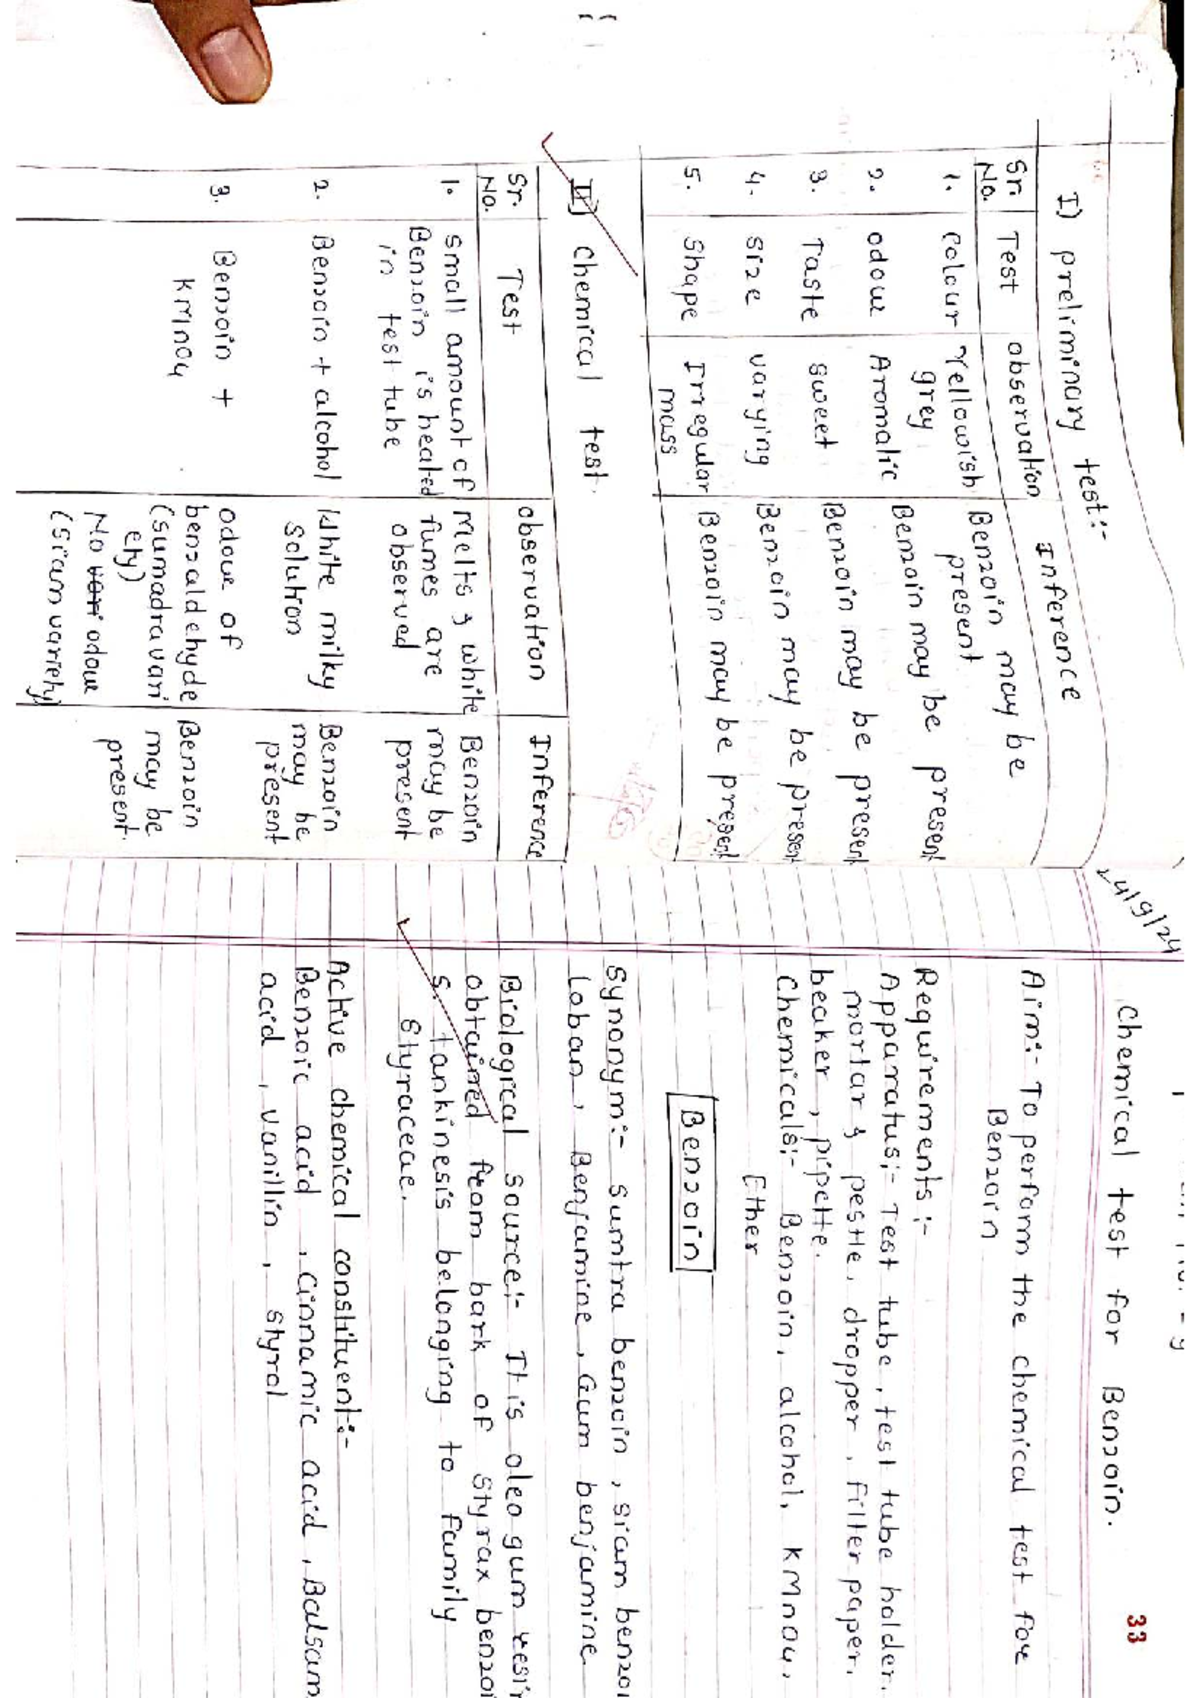 I) preliminary test:-
Sr. No. Test observation Inference
1. colour Yellowish grey Benzoin may be present
2. odour Aromatic Benzoin may be present
3. Taste sweet Benzoin may be present
4. size varying Benzoin may be present
5. shape Irregular mass Benzoin may be present
II) Chemical test.
Sr. No. Test observation Inference
1. small amount of Benzoin is heated in test tube Melts & white fumes are observed Benzoin may be present
2. Benzoin + alcohol White milky solution Benzoin may be present
3. Benzoin + KMnO4 odour of benzaldehyde (sumadra variety) No odour (siam variety) Benzoin may be present.
24/9/24
33
Chemical test for Benzoin.
Aim:- To perform the chemical test for
Benzoin
Requirements:-
Apparatus:- Test tube, test tube holder.
mortar & pestle, dropper, filter paper,
beaker, pipette.
Chemicals:- Benzoin, alcohol, KMnO4,
Ether
Benzoin
Synonym:- sumtra benzoin, siam benzoi
Loban, Benjamine, Gum benjamine
Biological source:- It is oleo gum resin
obtained from bark of styrax benzoi
s. tankinesis belonging to family
styraceae.
Active chemical constituent:-
Benzoic acid, cinnamic acid, Balsam
acid, vanillin, styrol